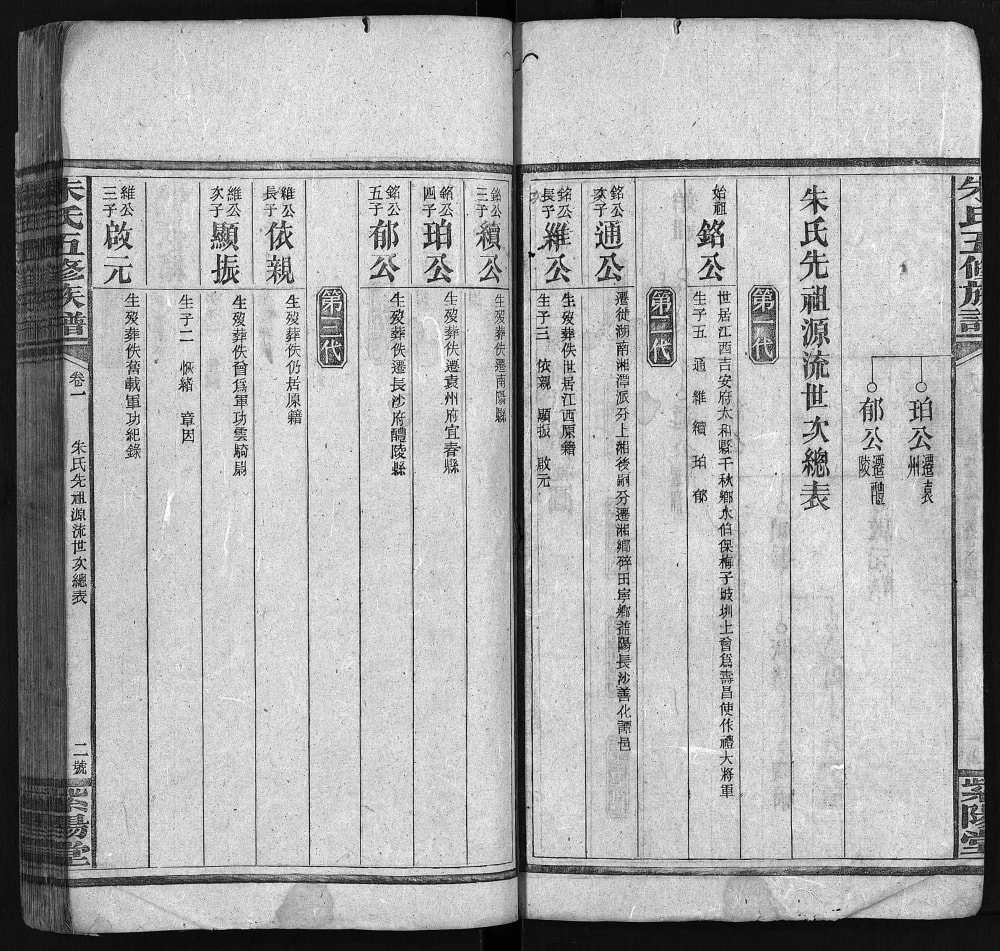 朱氏五修族譜
紫陽堂
珀公遷袁州
郁公遷醴陵
朱氏先祖源流世次總表
第一代
始祖銘公
世居江西吉安府太和縣千秋鄉水伯保梅子坡圳上曾爲壽昌使作禮大將軍
生子五 通 維 續 珀 郁
第二代
銘公次子通公
遷徙湖南湘潭派分上湘後嗣分遷湘鄉碎田寧鄉益陽長沙善化譚邑
銘公長子維公
生歿葬佚世居江西原籍
生子三 依親 顯振 啟元
銘公三子續公
生歿葬佚遷南陽縣
銘公四子珀公
生歿葬佚遷袁州府宜春縣
銘公五子郁公
生歿葬佚遷長沙府醴陵縣
第三代
維公長子依親
生歿葬佚仍居原籍
維公次子顯振
生歿葬佚曾爲軍功雲騎尉
生子二 恢緒 章因
維公三子啟元
生歿葬佚舊載軍功紀錄
朱氏五修族譜
卷一
朱氏先祖源流世次總表
二號
紫陽堂